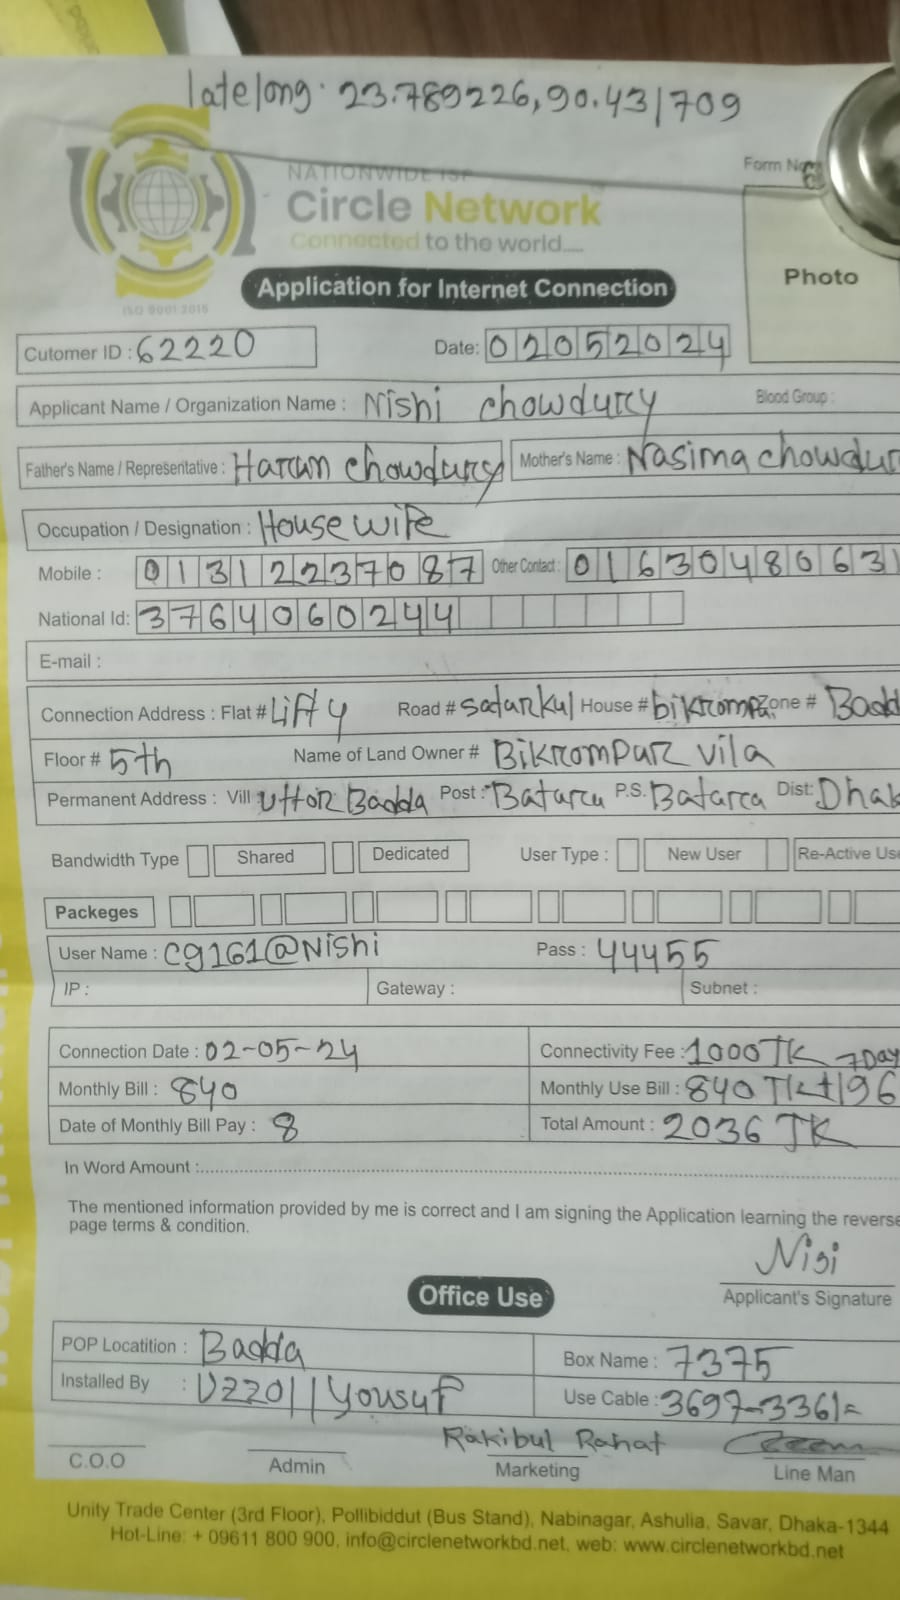 latelong. 23.789226,90.431709
Form No
NATIONWIDE ISP
Circle Network
Connected to the world....
ISO 9001:2015
Application for Internet Connection
Photo
Cutomer ID : 62220 Date: 02052024
Applicant Name / Organization Name : Nishi chowdury Blood Group :
Father's Name / Representative : Harun chowdury Mother's Name : Nasima chowdur
Occupation / Designation : House wife
Mobile : 01312237087 Other Contact : 01630480631
National Id: 3764060244
E-mail :
Connection Address : Flat # Lift 4 Road # satarkul House # bikrompa Zone # Badd
Floor # 5th Name of Land Owner # Bikrompur vila
Permanent Address : Vill Uttor Badda Post : Batara P.S. Batara Dist: Dhak
Bandwidth Type Shared Dedicated User Type : New User Re-Active Use
Packeges
User Name : cg161@Nishi Pass : 44455
IP : Gateway : Subnet :
Connection Date : 02-05-24 Connectivity Fee : 1000 TK 7Day
Monthly Bill : 840 Monthly Use Bill : 840 TK+196
Date of Monthly Bill Pay : 8 Total Amount : 2036 TK
In Word Amount :
The mentioned information provided by me is correct and I am signing the Application learning the reverse
page terms & condition.
Nisi
Applicant's Signature
Office Use
POP Locatition : Badda Box Name : 7375
Installed By : Uzzol/Yousuf Use Cable : 3697-3361=
Rakibul Rahat
C.O.O Admin Marketing Line Man
Unity Trade Center (3rd Floor), Pollibiddut (Bus Stand), Nabinagar, Ashulia, Savar, Dhaka-1344
Hot-Line: + 09611 800 900, info@circlenetworkbd.net, web: www.circlenetworkbd.net